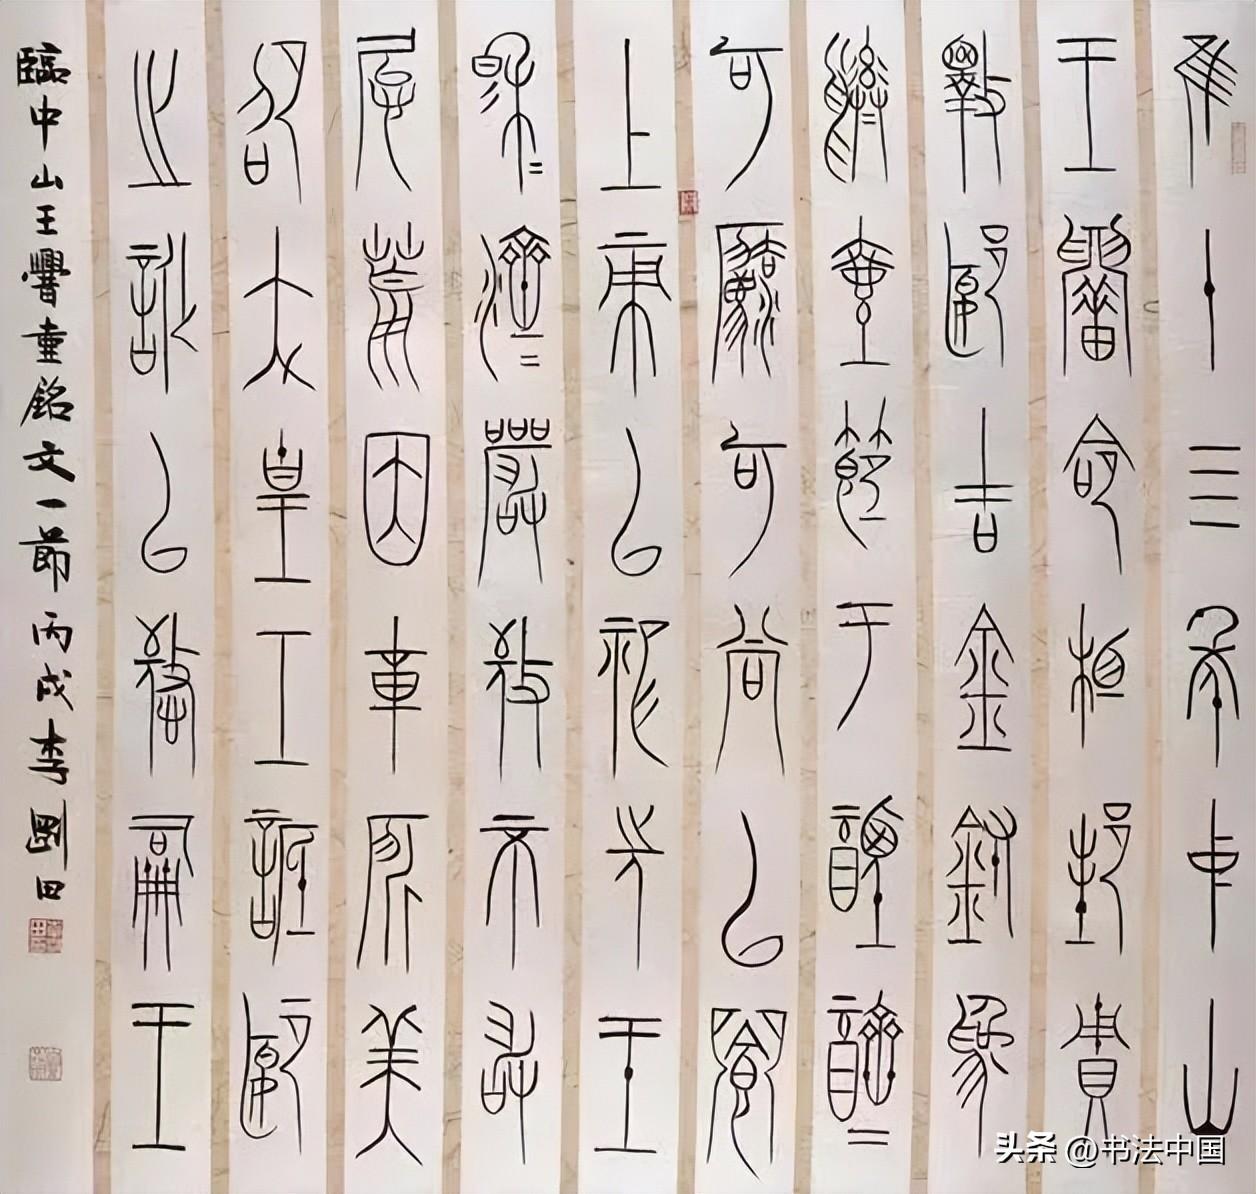 隹十亖年中山
王命相邦賙
斁郾吉金鑄爲
彝壺節于禋齊
可灋可尚以饗
上帝以祀先王
穆=濟=嚴敬不敢
怠荒因載所美
卲大皇工詆郾
之訛以憼嗣王
臨中山王壺銘文一節丙戌李剛田
头条 @书法中国